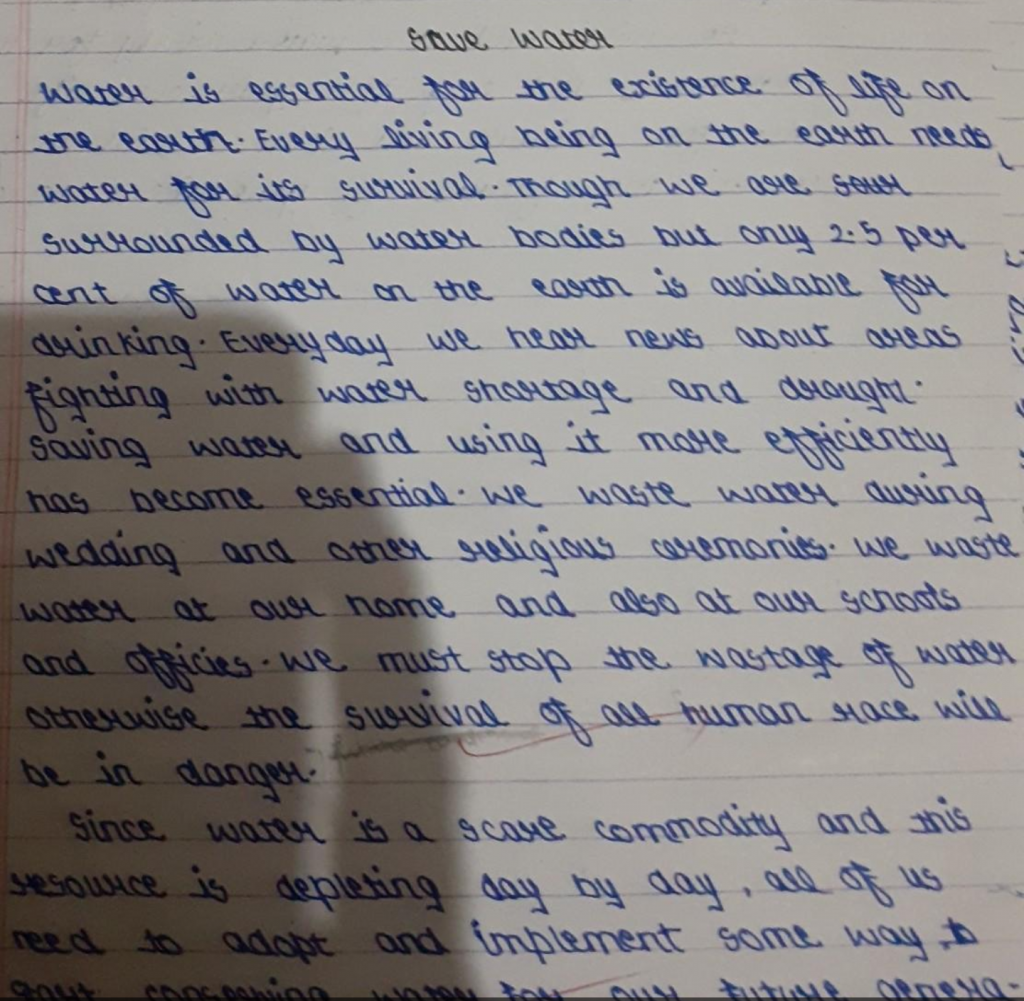 Save Water
Water is essential for the existence of life on
the earth. Every living being on the earth needs
water for its survival. Though we are sour
surrounded by water bodies but only 2.5 per
cent of water on the earth is available for
drinking. Everyday we hear news about areas
fighting with water shortage and drought.
Saving water and using it more efficiently
has become essential. We waste water during
wedding and other religious ceremonies. We waste
water at our home and also at our schools
and officies. We must stop the wastage of water
otherwise the survival of all human race will
be in danger.
Since water is a scare commodity and this
resource is depleting day by day, all of us
need to adopt and implement some way to
start conserving water for our future genera-